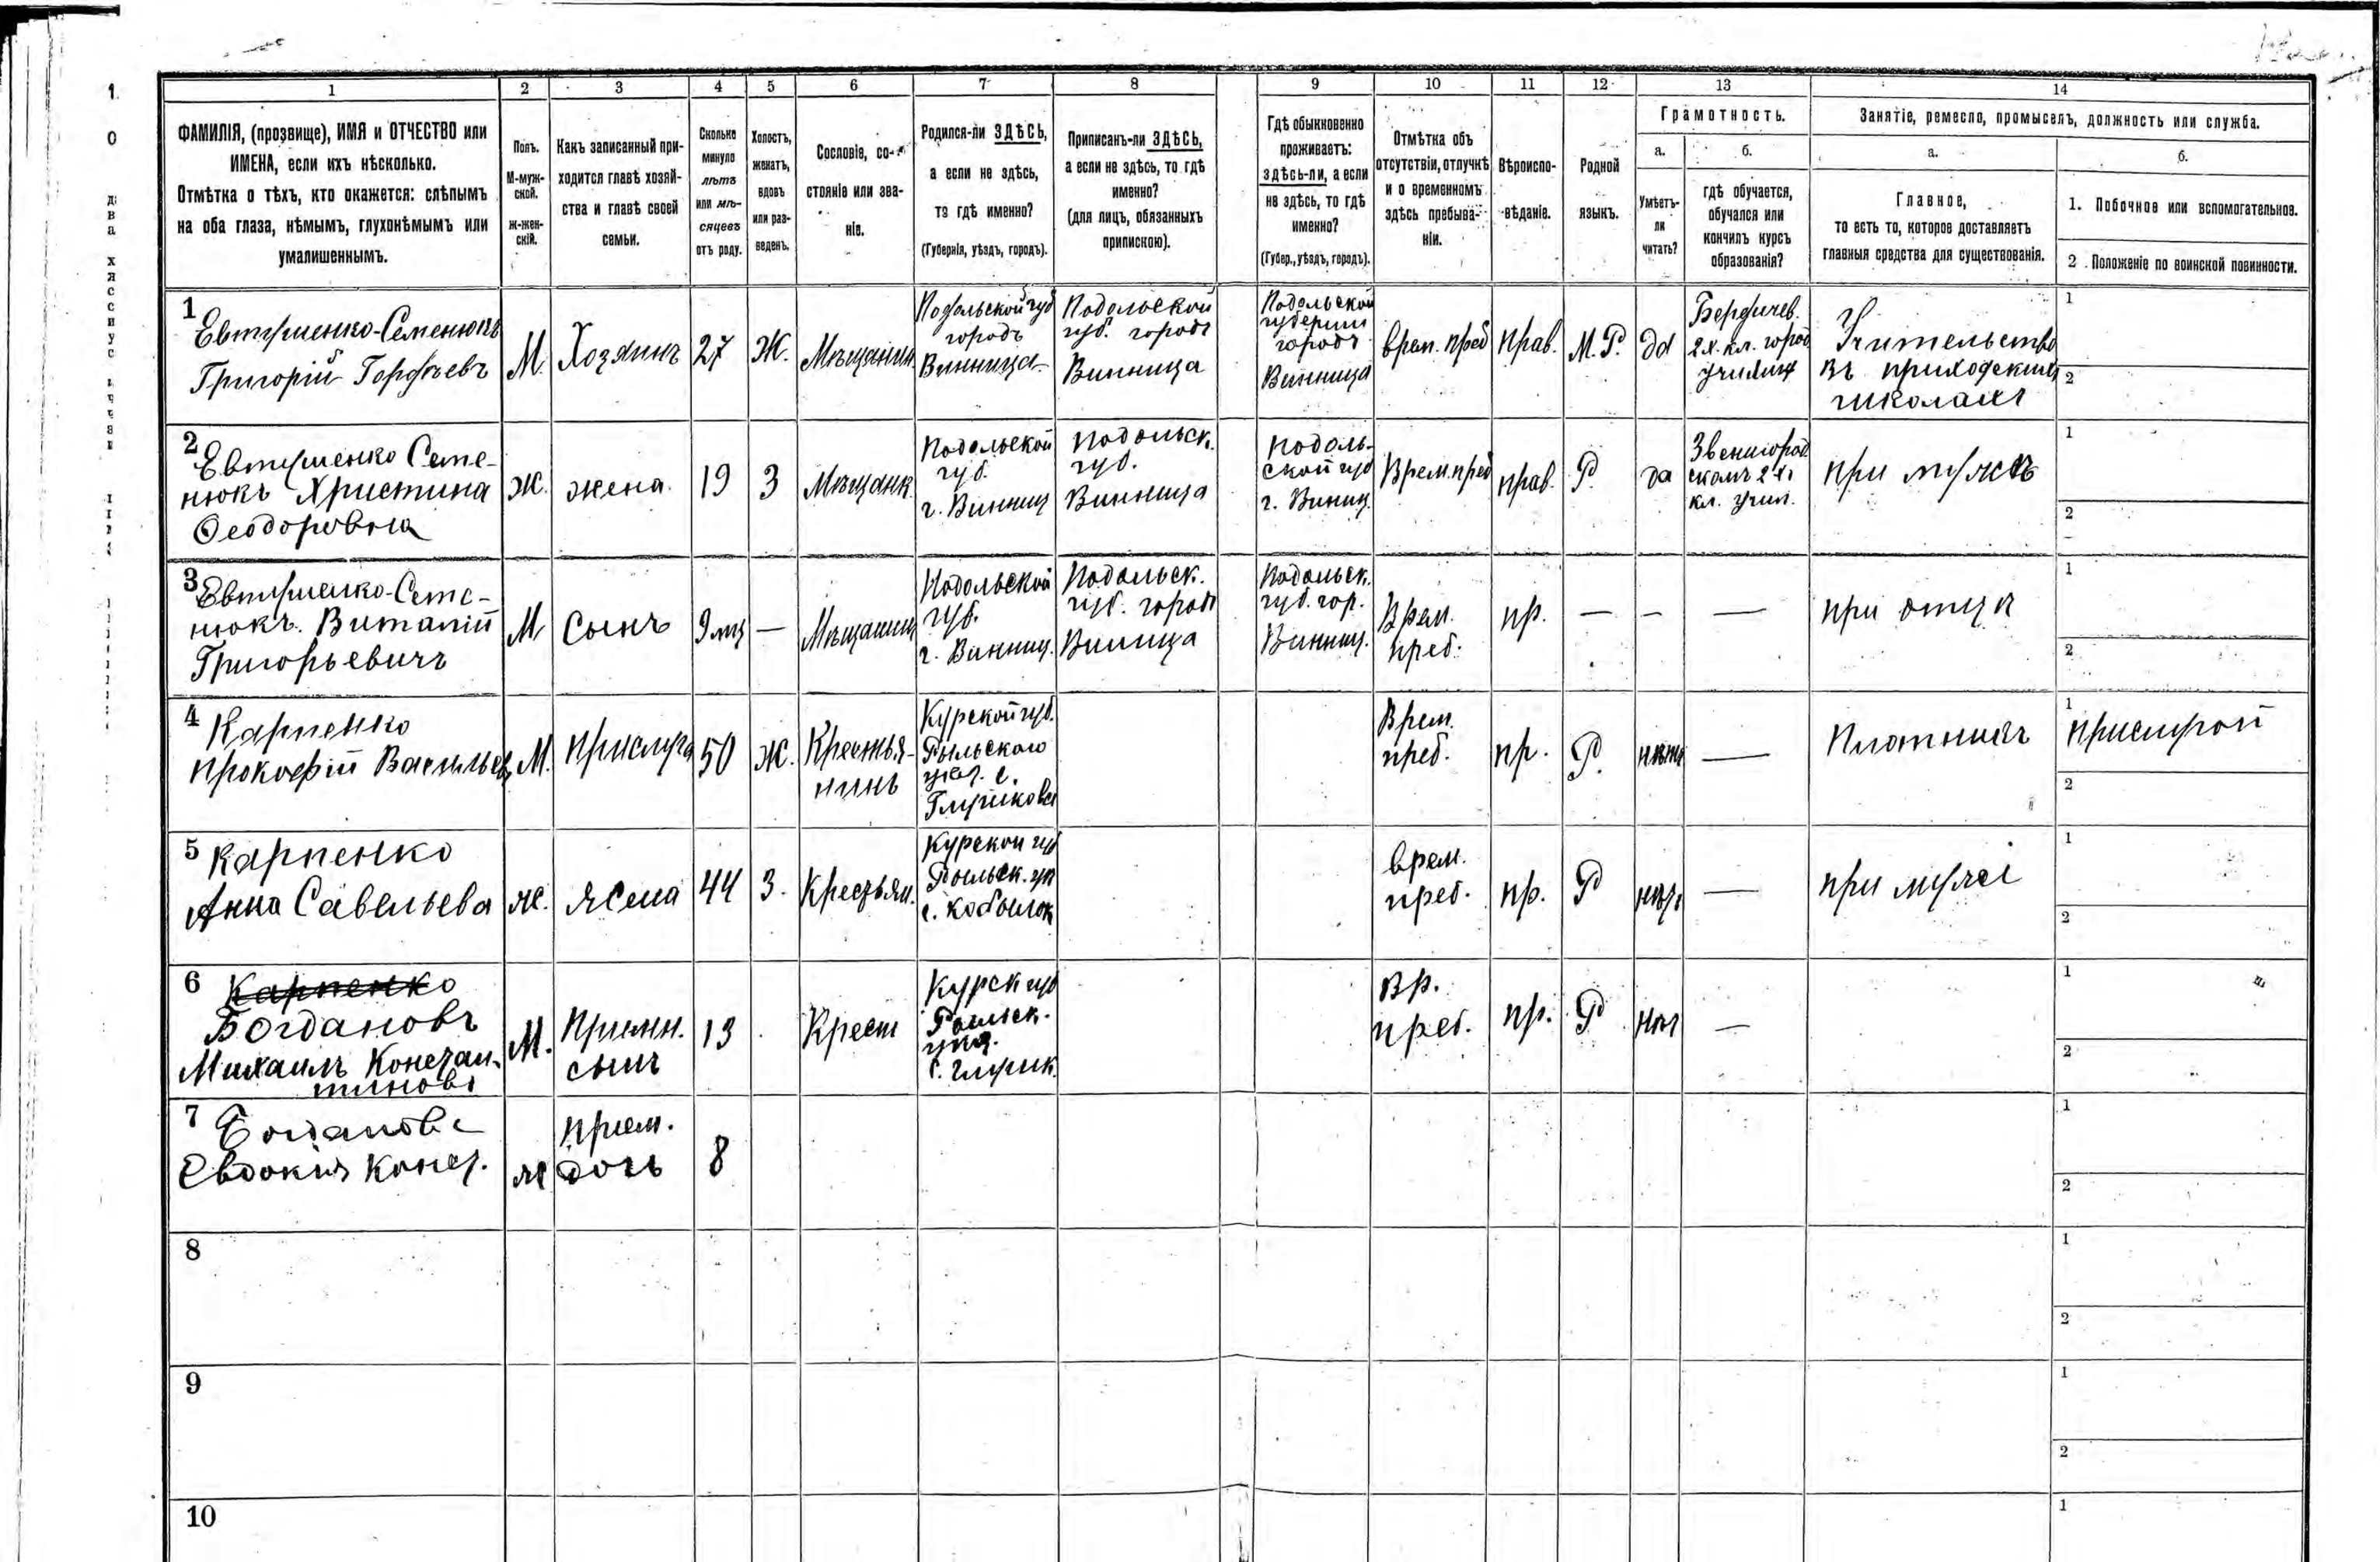 1 2 3 4 5 6 7 8 9 10 11 12 13 14
ФАМИЛІЯ, (прозвище), ИМЯ и ОТЧЕСТВО или
ИМЕНА, если ихъ нѣсколько.
Отмѣтка о тѣхъ, кто окажется: слѣпымъ
на оба глаза, нѣмымъ, глухонѣмымъ или
умалишеннымъ.
Полъ.
М-муж-
ской.
ж-жен-
скій.
Какъ записанный при-
ходится главѣ хозяй-
ства и главѣ своей
семьи.
Сколько
минуло
лѣтъ
или мѣ-
сяцевъ
отъ роду.
Холостъ,
женатъ,
вдовъ
или раз-
веденъ.
Сословіе, со-
стояніе или зва-
ніе.
Родился-ли ЗДѢСЬ,
а если не здѣсь,
то гдѣ именно?
(Губернія, уѣздъ, городъ).
Приписанъ-ли ЗДѢСЬ,
а если не здѣсь, то гдѣ
именно?
(для лицъ, обязанныхъ
припискою).
Гдѣ обыкновенно
проживаетъ:
здѣсь-ли, а если
не здѣсь, то гдѣ
именно?
(Губер., уѣздъ, городъ).
Отмѣтка объ
отсутствіи, отлучкѣ
и о временномъ
здѣсь пребыва-
ніи.
Вѣроиспо-
вѣданіе.
Родной
языкъ.
Грамотность.
а.
Умѣетъ-
ли
читать?
б.
гдѣ обучается,
обучался или
кончилъ курсъ
образованія?
Занятіе, ремесло, промыселъ, должность или служба.
а.
Главное,
то есть то, которое доставляетъ
главныя средства для существованія.
б.
1. Побочное или вспомогательное.
2. Положеніе по воинской повинности.
1
Евтушенко-Семенюкъ
Григорій Гордѣевъ
М.
Хозяинъ
27
Ж.
Мѣщанин.
Подольской губ
городъ
Винница
Подольской
губ. городъ
Винница
Подольской
губерніи
городъ
Винница
врем. преб
прав.
М. Р.
да
Бердичев.
2х. кл. город
училищ
Учительство
въ приходскихъ
школахъ
1
2
2
Евтушенко Семе-
нюкъ Христина
Ѳеодоровна
Ж.
жена.
19
З
Мѣщанк.
Подольской
губ.
г. Винниц
Подольск.
губ.
Винница
Подоль-
ской губ
г. Виниц.
Врем. преб
прав.
Р.
да
Звенигород
скомъ 2хъ
кл. учил.
при мужѣ
1
2
3
Евтушенко-Семе-
нюкъ. Виталій
Григорьевичъ
М.
Сынъ
9 мц
—
Мѣщанин
Подольской
губ.
г. Винниц.
Подольск.
губ. городъ
Винница
Подольск.
губ. гор.
Винниц.
Врем.
преб.
пр.
— — —
при отцѣ
1
2
4
Карпенко
Прокофій Васильев
М.
прислуга
50
Ж.
Крестья-
нинъ
Курской губ.
Рыльскаго
уѣз. с.
Врем.
преб.
пр.
Р.
нѣтъ
—
Плотникъ
1
прислугой
2
5
Карпенко
Анна Савельева
ж.
жена
44
З.
Крестьян.
Курской губ
Рыльск. уѣ
врем.
преб.
пр.
Р
нѣт
—
при мужѣ
1
2
6
Карпенко
Богдановъ
Михаилъ Констан-
тиновъ
М.
Приемн.
сынъ
13
Крест
Курск губ
Рыльск.
уѣз.
Вр.
преб.
пр.
Р
нѣт
—
1
2
7
Богданова
Евдокія Конст.
ж
прием.
дочь
8
1
2
8
1
2
9
1
2
10
1